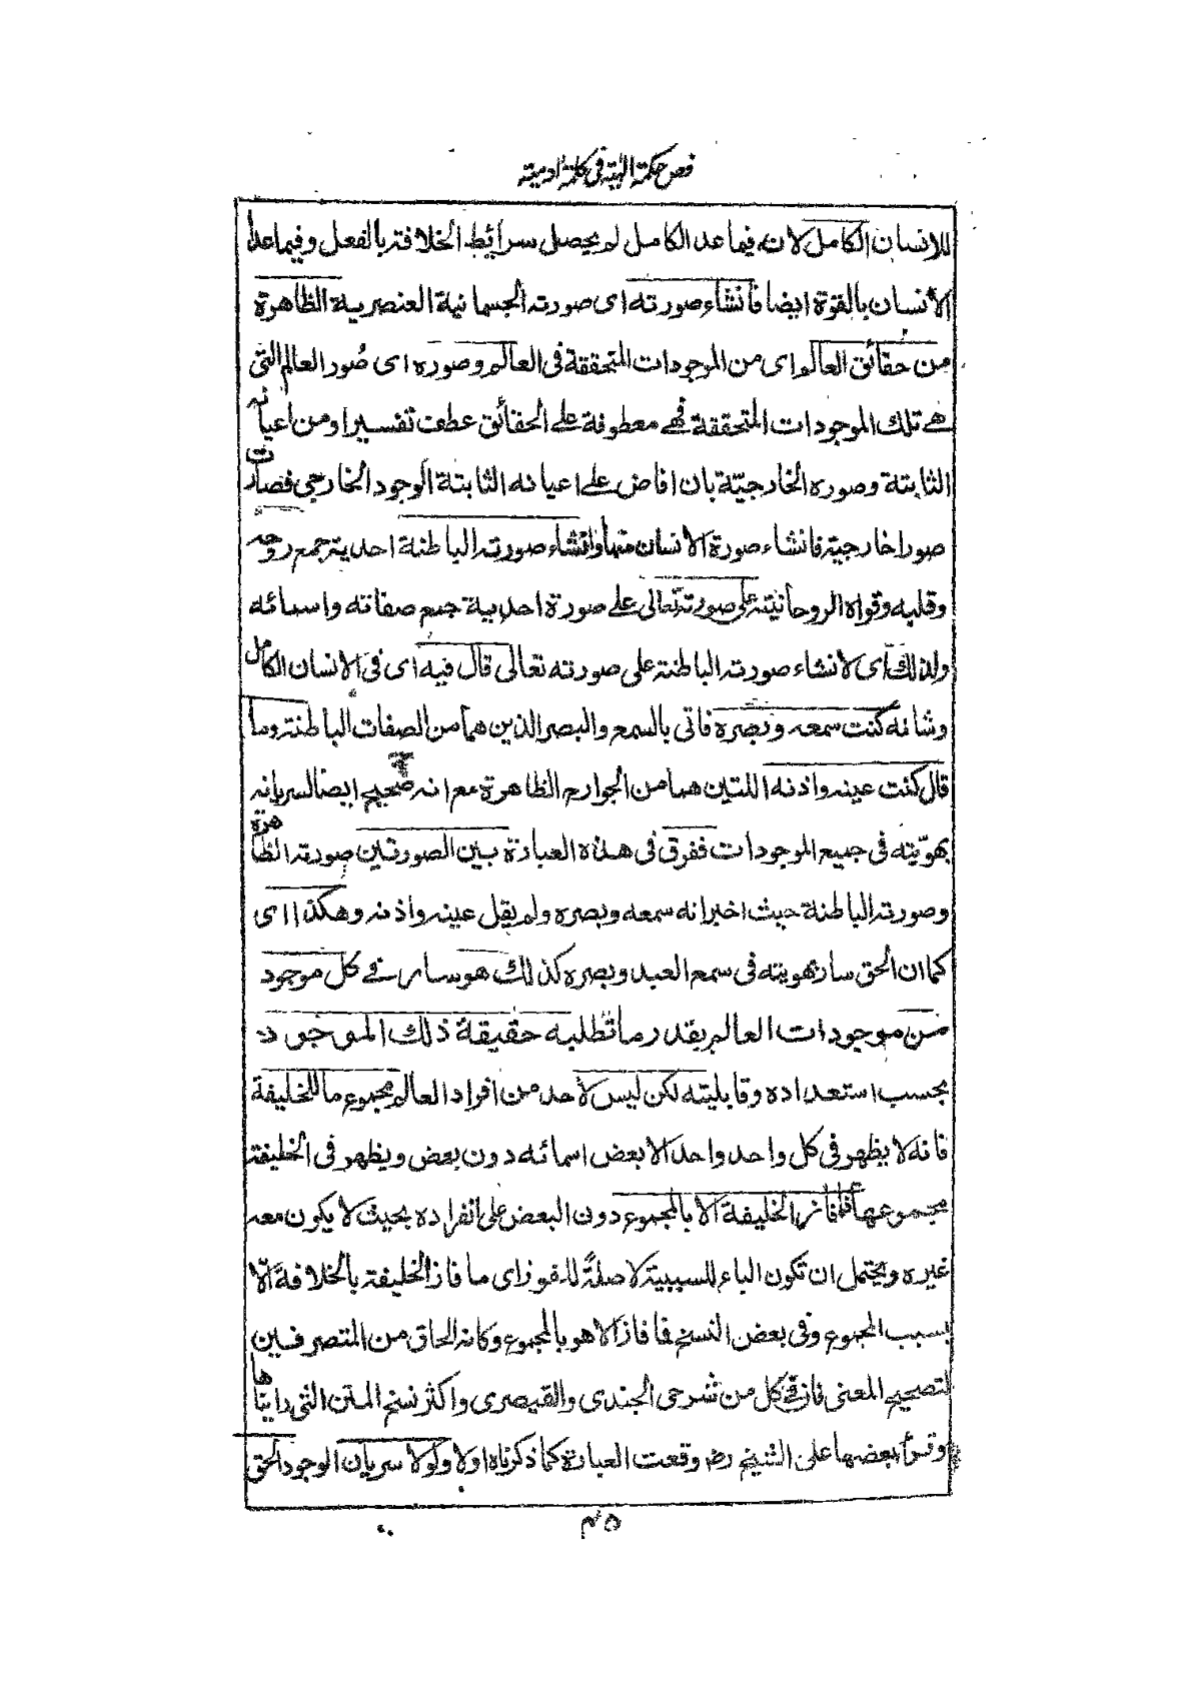 فص حكمة الهية فى كلمة ادمية
للانسان الكامل لانه فيما عدا الكامل لم يحصل سرائط الخلافة بالفعل وفيما عدا
الانسان بالقوة ايضا فانشاء صورته اى صورته الجسمانية العنصرية الظاهرة
من حقائق العالم اى من الموجودات المتحققة فى العالم وصوره اى صُور العالم التى
هے تلك الموجودات المتحققة فهے معطوفة علے الحقائق عطف تفسير او من اعيانه
الثابتة وصوره الخارجيّة بان افاض علے اعيانه الثابتة الوجود الخارجى فصارت
صورا خارجية فانشاء صورة الانسان منها وانشاء صورته الباطنة احدية جمع روحه
وقلبه وقواه الروحانية على صورته تعالى علے صورة احدية جمع صفاته واسمائه
ولذلك اى لانشاء صورته الباطنة على صورته تعالى قال فيه اى فى الانسان الكامل
وشانه كنت سمعه وبصره فاتى بالسمع والبصر الذين هما من الصفات الباطنة وما
قال كنت عينه واذنه اللتين هما من الجوارح الظاهرة مع انه صحيح ايضا لسريانه
بهويّته فى جميع الموجودات ففرق فى هذه العبارة بين الصورتين صورته الظاهرة
وصورته الباطنة حيث اخبر انه سمعه وبصره ولم يقل عينه واذنه وهكذا اى
كما ان الحق سار بهويته فى سمع العبد وبصره كذلك هو سار فے كل موجود
من موجودات العالم بقدر ما تطلبه حقيقة ذلك الموجود
بحسب استعداده وقابليته لكن ليس لاحد من افراد العالم مجموع ما للخليفة
فانه لا يظهر فى كل واحد واحد الا بعض اسمائه دون بعض ويظهر فى الخليفة
مجموعها فما فاز الخليفة الا بالمجموع دون البعض على انفراده بحيث لا يكون معه
غيره ويحتمل ان تكون الباء للسببية لا صلةً للفوز اى ما فاز الخليفة بالخلافة الّا
بسبب المجموع وفى بعض النسخ فما فاز الا هو بالمجموع وكانه الحاق من المتصرفين
لتصحيح المعنى فان فى كل من شرحى الجندى والقيصرى واكثر نسخ المتن التى رايناها
وقرأ بعضها على الشيخ رضہ وقعت العبارة كما ذكرناه اولا ولولا سريان الوجود الحق
٤٥